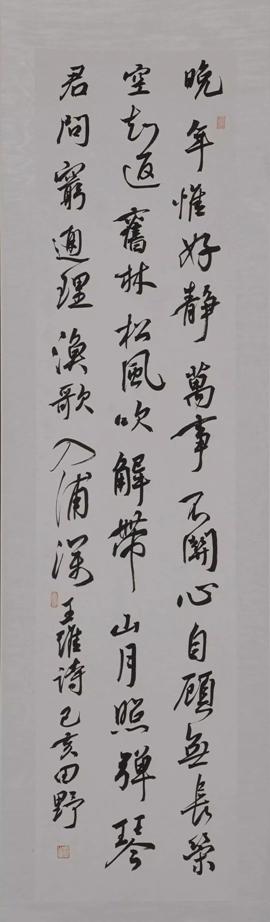 晚年惟好静萬事不關心自顧無長策
空知返舊林松風吹解帶山月照弹琴
君問窮通理漁歌入浦深
王維诗己亥田野